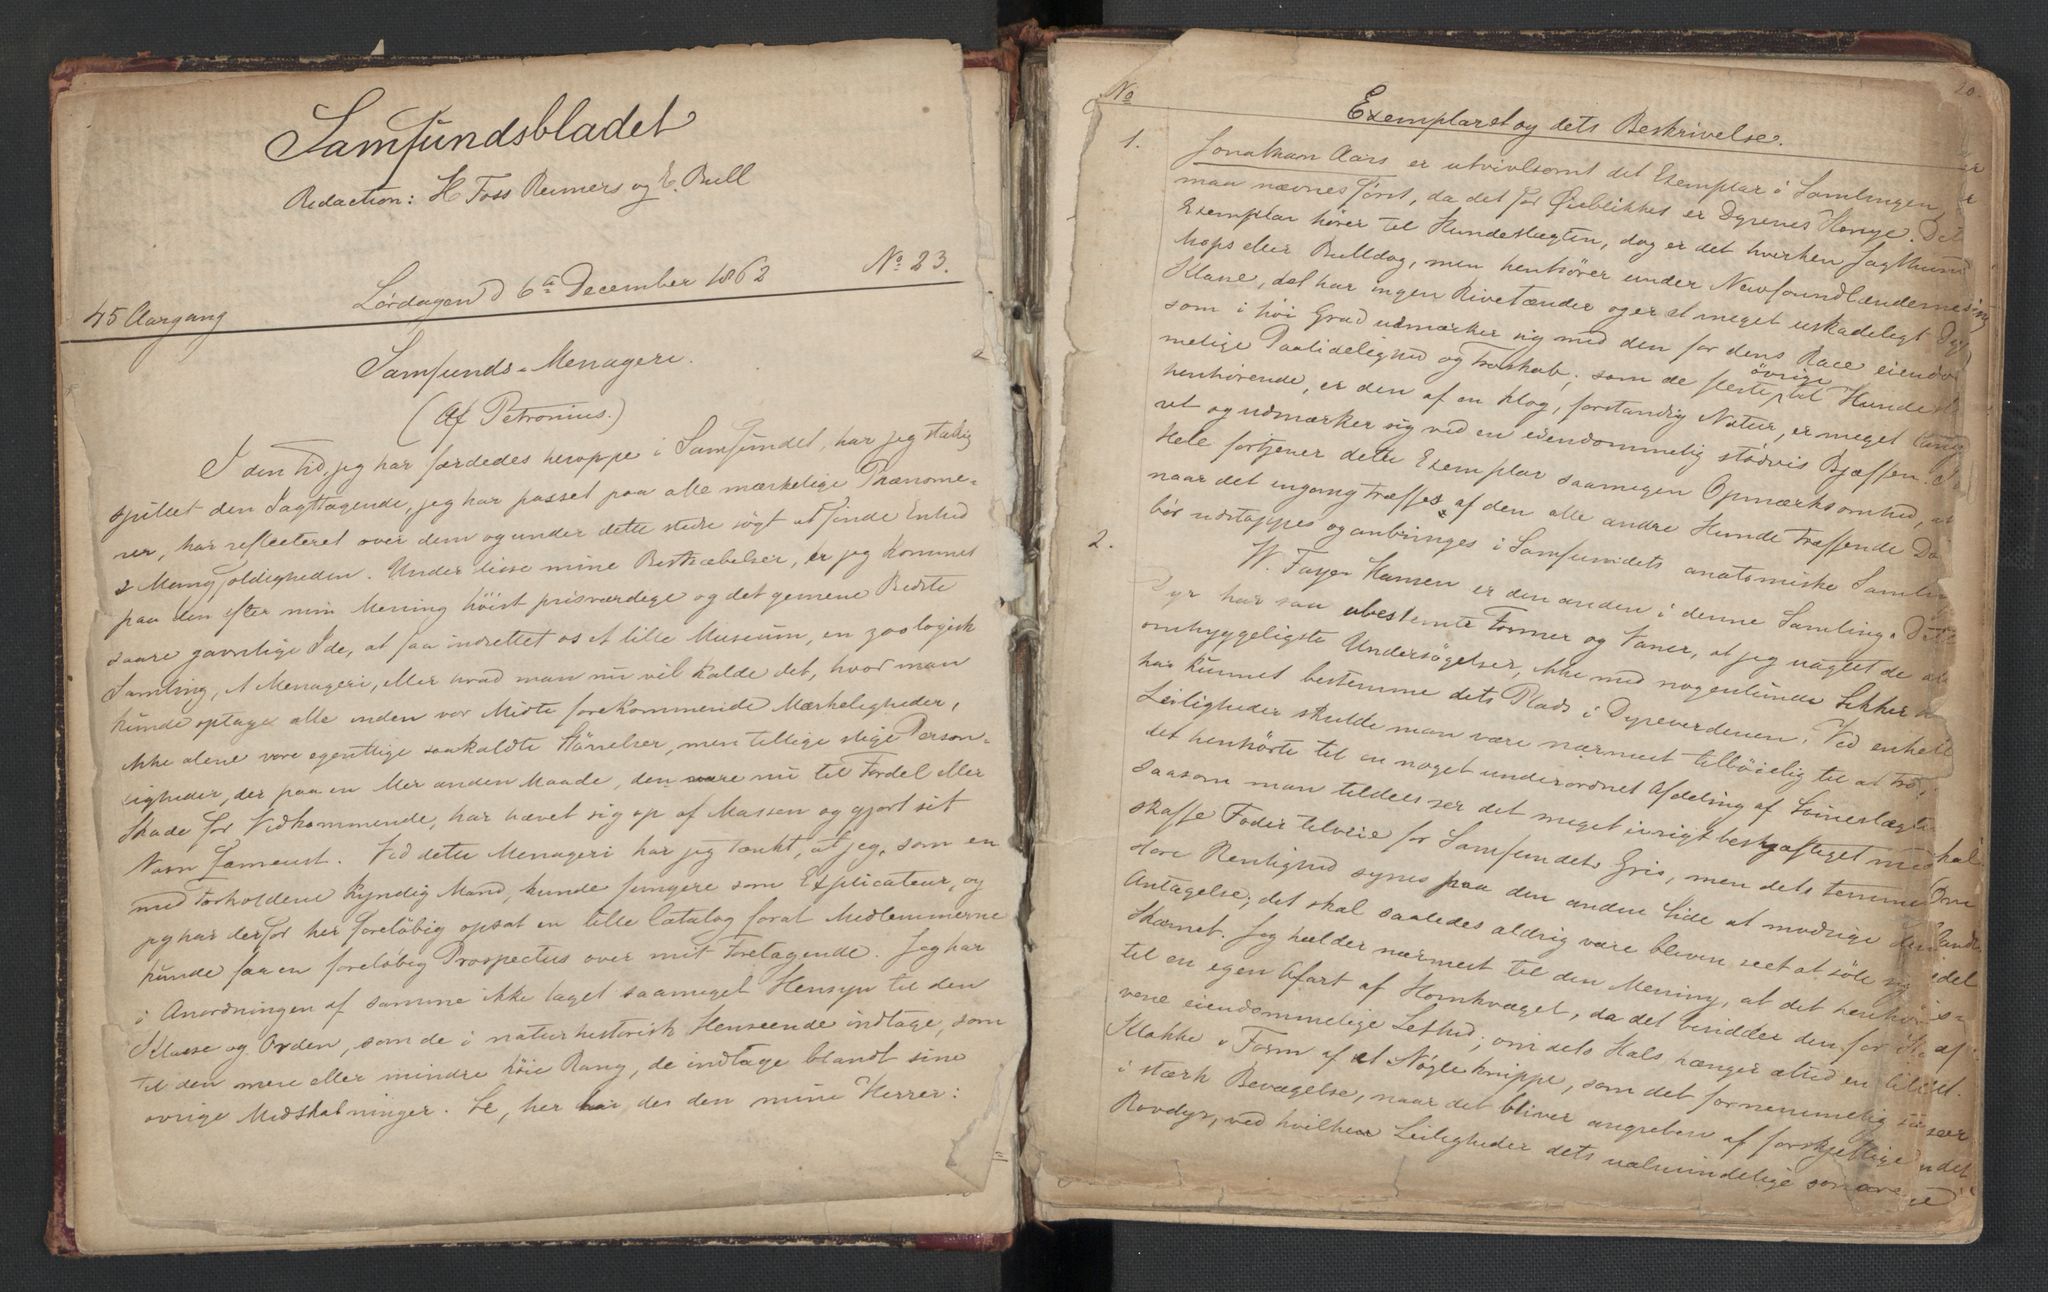 Samfundsbladet
Redaction: H Foss Reimers og E. Bull
45 Aargang Lørdagen d 6te December 1862 No 23.
Samfunds-Menageri.
(Af Petronius.)
I den Tid, jeg har færdedes heroppe i Samfundet, har jeg stadig
spillet den Iagttagende, jeg har passet paa alle mærkelige Phænome-
ner, har reflecteret over dem og under dette stedse søgt at finde Enhed
i Mangfoldigheden. Under disse mine Bestræbelser, er jeg kommet
paa den efter min Mening høist prisværdige og det gemene Bedste
saare gavnlige Ide, at faa indrettet os et lille Museum, en zoologisk
Samling, et Menageri, eller hvad man nu vil kalde det, hvor man
kunde optage alle inden vor Midte forekommende Mærkeligheder,
ikke alene vore egentlige saakaldte Størrelser, men tillige slige Person-
ligheder, der paa en eller anden Maade, den være nu til Fordel eller
Skade for Vedkommende, har hævet sig op af Massen og gjort sit
Navn famøust. Ved dette Menageri har jeg tænkt, at jeg, som en
med Forholdene kyndig Mand, kunde fungere som Explicateur, og
jeg har derfor her foreløbig opsat en lille Catalog forat Medlemmerne
kunde faa en foreløbig Prospectus over mit Foretagende. Jeg har
i Anordningen af samme ikke taget saameget Hensyn til den
Klasse og Orden, som de i naturhistorisk Henseende indtage, som
til den mere eller mindre høie Rang, de indtage blandt sine
øvrige Medskabninger. Se, her har de den mine Herrer:
No 20.
Exemplaret og dets Beskrivelse.
1. Jonathan Aars er utvivlsomt det Exemplar i Samlingen,
maa nævnes først, da det for Øieblikket er Dyrenes Konge. Det
Exemplar hører til Hundeslægten, dog er det hverken Jagthund
Mops eller Bulldog, men henhører under Newfoundlændernes
Klasse, det har ingen Rivetænder og er et meget uskadeligt Dyr
som i høi Grad udmærker sig med den for dens Race eiendom
melige Paalidelighed og Troskab; som de fleste øvrige til Hunde
henhørende, er den af en klog, forstandig Natur, er meget
vet og udmærker sig ved en eiendommelig stødvis Bjæffen.
Hele fortjener dette Exemplar saamegen Opmærksomhed, at
naar det engang træffes af den alle andre Hunde træffende
bør udstoppes og anbringes i Samfundets anatomiske Samling
2. W. Faye Hansen er den anden i denne Samling. Dette
Dyr har saa ubestemte Former og Vaner, at jeg uagtet de
omhyggeligste Undersøgelser, ikke med nogenlunde Sikker
har kunnet bestemme dets Plads i Dyreverdenen. Ved enkelte
Leiligheder skulde man være nærmest tilbøielig til at tro
det henhørte til en noget underordnet Afdeling af Svineslægte
saasom man tildels ser det meget ivrigt beskjæftiget med
skaffe Foder tilveie for Samfundets Gris, men dets temme
store Renlighed synes paa den anden Side at modsige den
Antagelse; det skal saaledes aldrig være bleven seet at søle sig
Skarnet. Jeg hælder nærmest til den Mening, at det henhør
til en egen Afart af Hornkvæget, da det besidder den for
vene eiendommelige Lethed; om dets Hals hænger altid en lille
Klokke i Form af et Nøgleknippe, som det fornemmelig
i stærk Bevægelse, naar det bliver angreben af forskjellige
Rovdyr, ved hvilken Leiligheder dets ualmindelige sonore